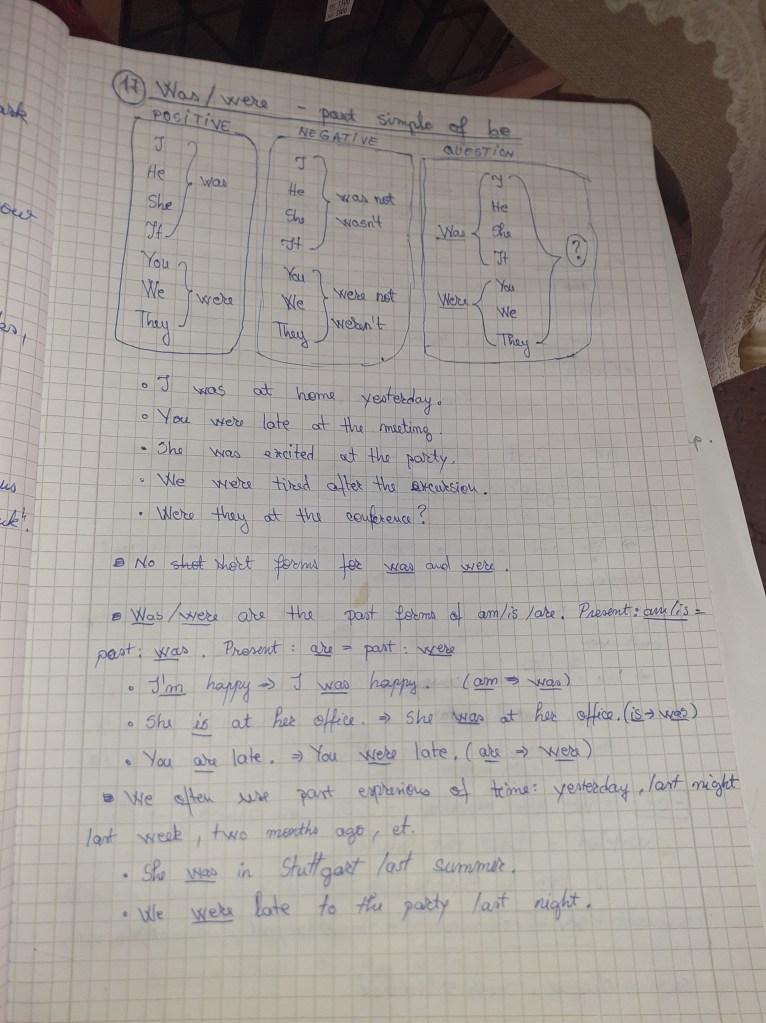 17 Was/were - past simple of be
POSITIVE
I
He
She
It
was
You
We
They
were
NEGATIVE
I
He
She
It
was not
wasn't
You
We
They
were not
weren't
QUESTION
Was
I
He
She
It
Were
You
We
They
?
• I was at home yesterday.
• You were late at the meeting.
• She was excited at the party.
• We were tired after the excursion.
• Were they at the conference?
No shot short forms for was and were.
Was/were are the past forms of am/is/are. Present: am/is =
past: was. Present: are = past: were
• I'm happy ⇒ I was happy. (am ⇒ was)
• She is at her office. ⇒ She was at her office. (is → was)
• You are late. ⇒ You were late. (are ⇒ were)
We often use past expresions of time: yesterday, last night
last week, two months ago, et.
• She was in Stuttgart last summer.
• We were late to the party last night.
ask
our
us